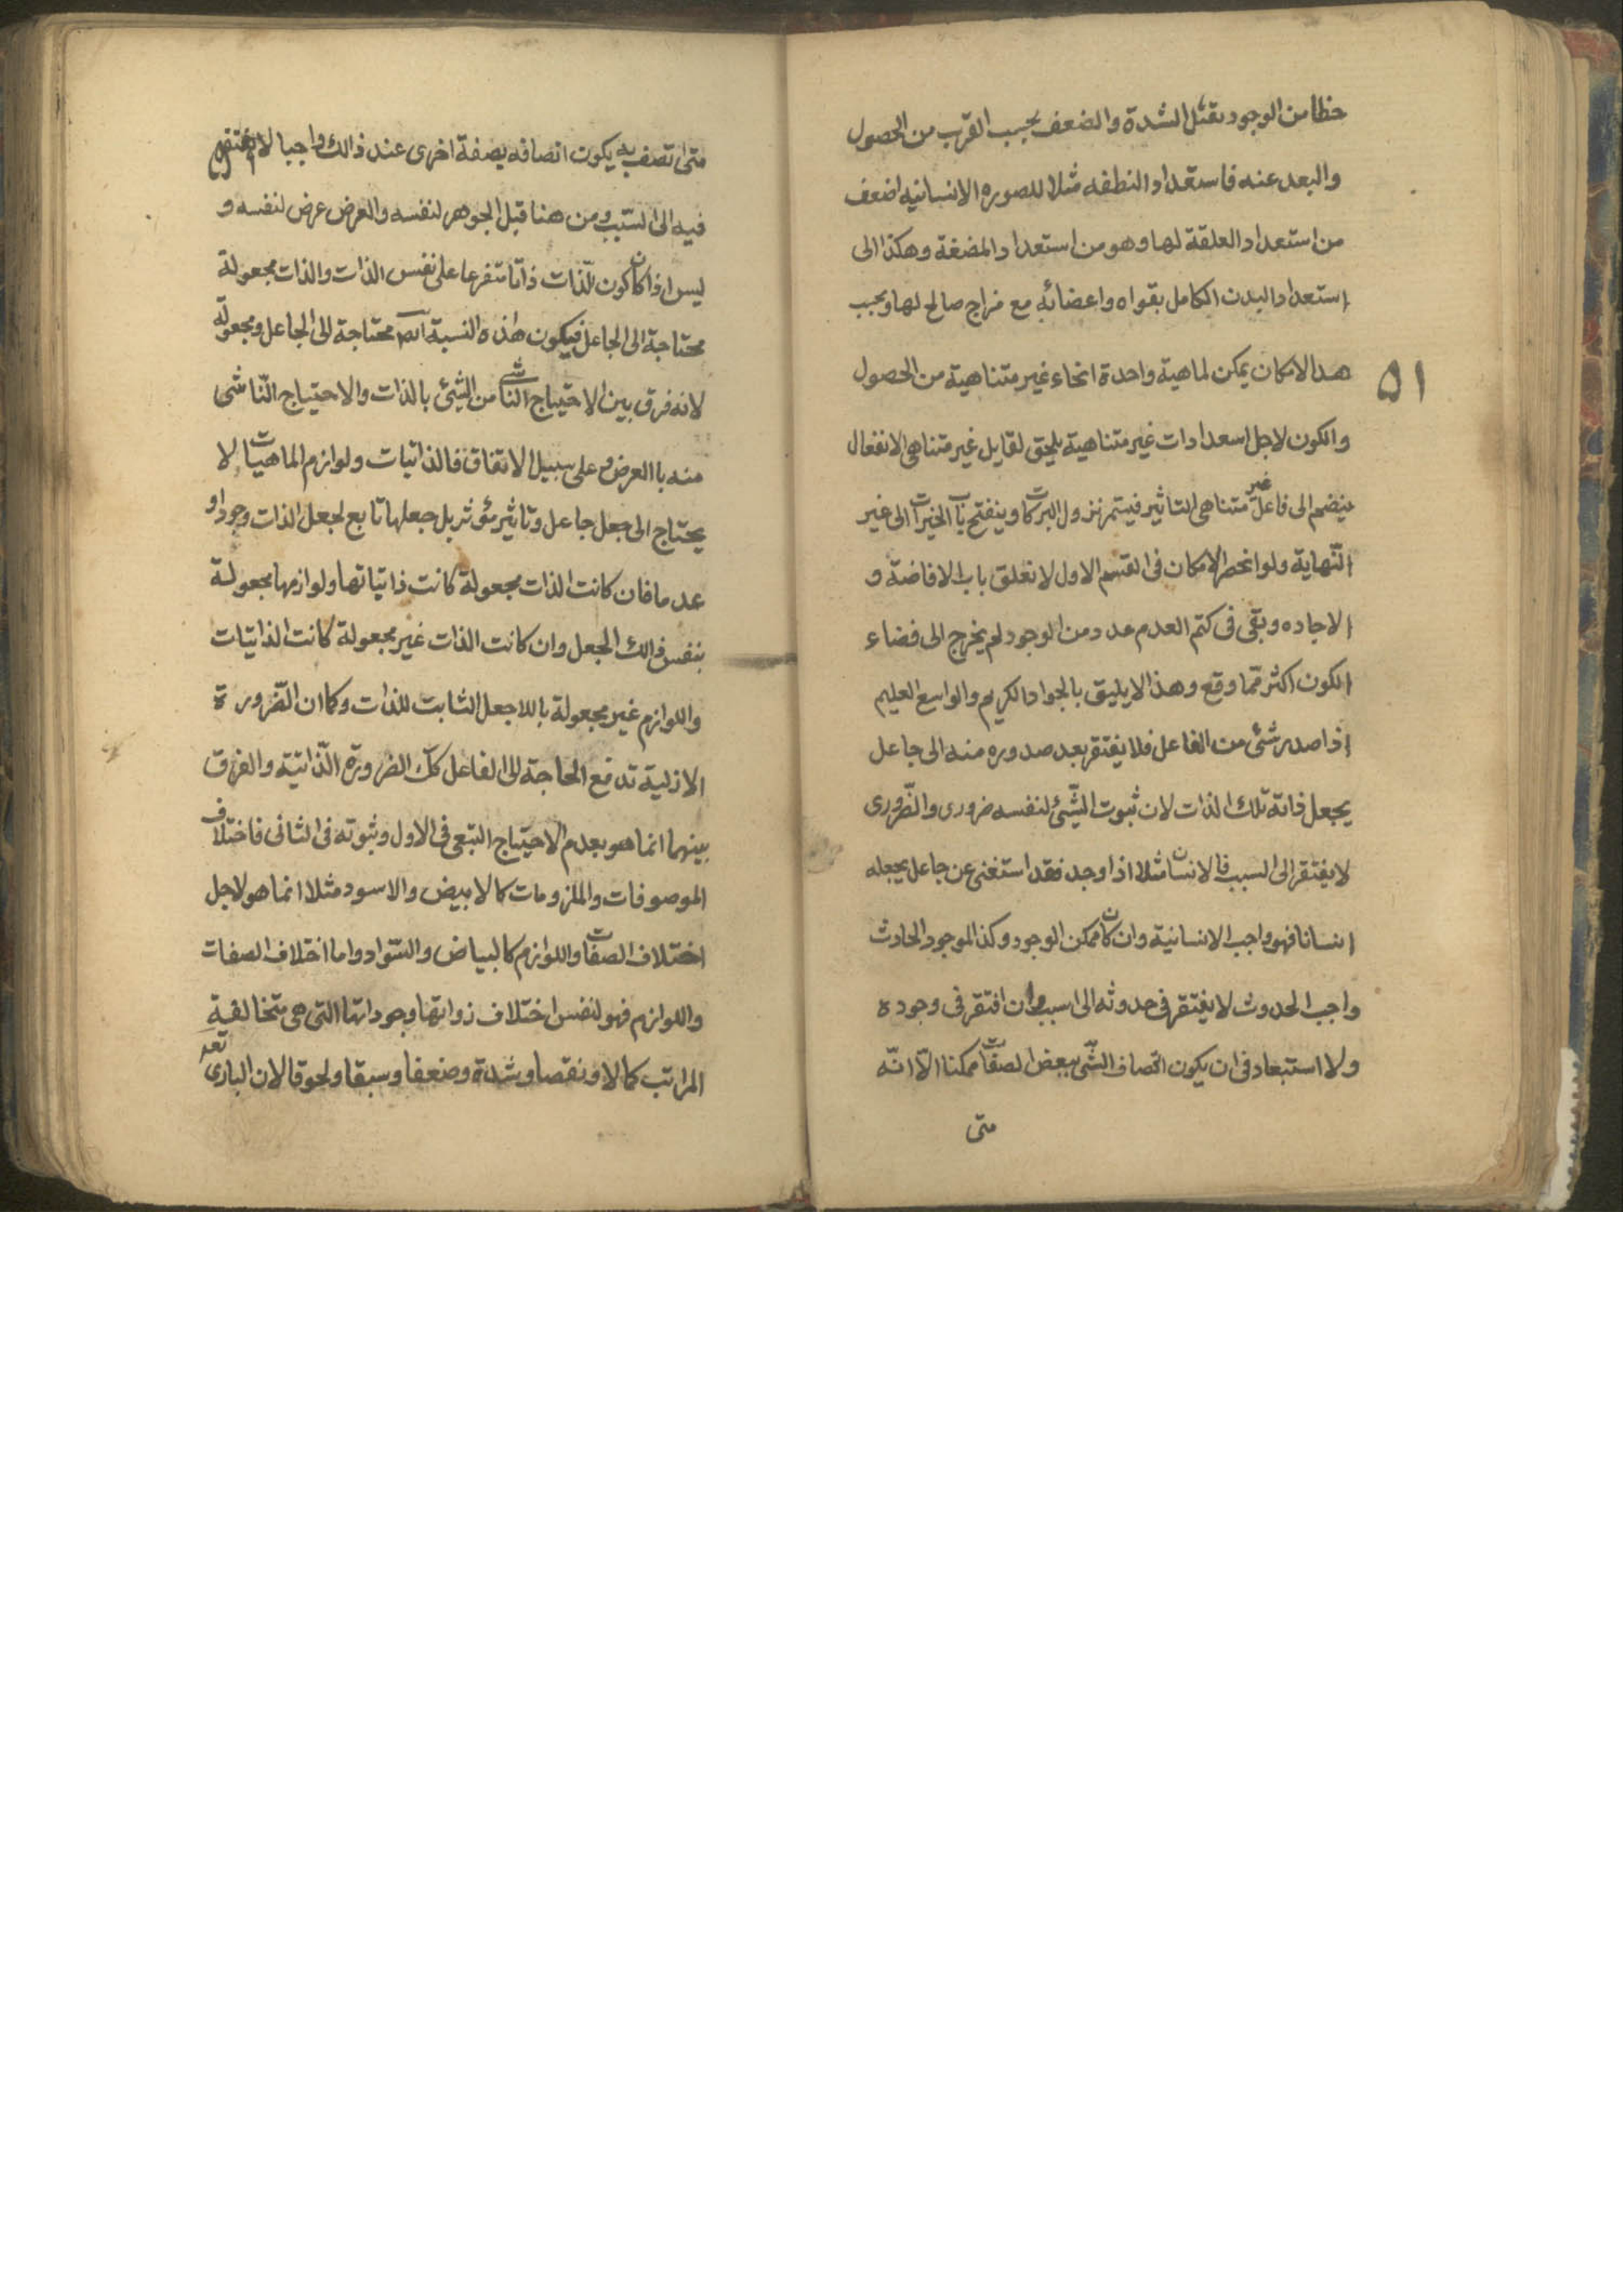 حظا من الوجود يقبل الشدة والضعف بحسب القرب من الحصول
والبعد عنه فاستعداد النطفه مثلا للصوره الانسانيه اضعف
من استعداد العلقة لها وهو من استعداد المضغة وهكذا الى
استعداد البدن الكامل بقواه واعضائه مع مزاج صالح لها وبحسب
هذا الامكان يمكن لماهية واحدة انحاء غير متناهية من الحصول
۵۱
والكون لاجل اسعدادات غير متناهية يلحق لقابل غير متناهى الانفعال
ينضم الى فاعل غير متناهى التاثير فيستمر نزول البركات وينفتح باب الخيرات الى غير
النّهاية ولو انحصر الامكان فى القسم الاول لانغلق باب الافاضة و
الاجاده وبقى فى كتم العدم عدد من الوجود لم يخرج الى فضاء
الكون اكثر ممّا وقع وهذا لا يليق بالجواد الكريم والواسع العليم
اذا صدر شئ من الفاعل فلا يفتقر بعد صدوره منه الى جاعل
يجعل ذاته تلك الذات لان ثبوت الشّئ لنفسه ضرورى والضّرورى
لا يفتقر الى السبب فالانسان مثلا اذا وجد فقد استغنى عن جاعل يجعله
انسانا فهو واجب الانسانية وان كان ممكن الوجود وكذا الموجود الحادث
واجب الحدوث لا يفتقر فى حدوثه الى سبب وان افتقر فى وجوده
ولا استبعاد فى ان يكون اتصاف الشّئ ببعض الصفات ممكنا الّا انّه
متى
متى اتصف به يكون اتصافه بصفة اخرى عند ذالك واجبا لا يفتقر
فيه الى السّبب ومن هنا قيل الجوهر لنفسه والعرض عرض لنفسه و
ليس اذا كان كون الّذات ذاتا متفرعا على نفس الذات والذات مجعولة
محتاجة الى الجاعل فيكون هذه النسبة ايضا محتاجة الى الجاعل ومجعولة
لانه فرق بين الاحتياج الناشى من الشئ بالذات والاحتياج النّاشى
منه باالعرض وعلى سبيل الاتفاق فالذاتيات ولوازم الماهيات لا
يحتاج الى جعل جاعل وتاثير مؤثر بل جعلها تابع لجعل الذات وجودا و
عدما فان كانت الذات مجعولة كانت ذاتياتها ولوازمها مجعولة
بنفس ذالك الجعل وان كانت الذات غير مجعولة كانت الذاتيات
واللوازم غير مجعولة باللاجعل الثابت للذات وكما ان الضّرورة
الازلية تدفع الحاجة الى الفاعل كك الضرورة الذّاتيّة والفرق
بينهما انما هو بعدم الاحتياج التبعى فى الاول وثبوته فى الثانى فاختلاف
الموصوفات والملزومات كالابيض والاسود مثلا انما هو لاجل
اختلاف الصفات واللوازم كالبياض والسّواد واما اختلاف الصفات
واللوازم فهو لنفس اختلاف ذواتها وجوداتها التى هى متخالفية
المراتب كمالا ونقصا وشدة وضعفا وسبقا ولحوقا لان البارى تعه